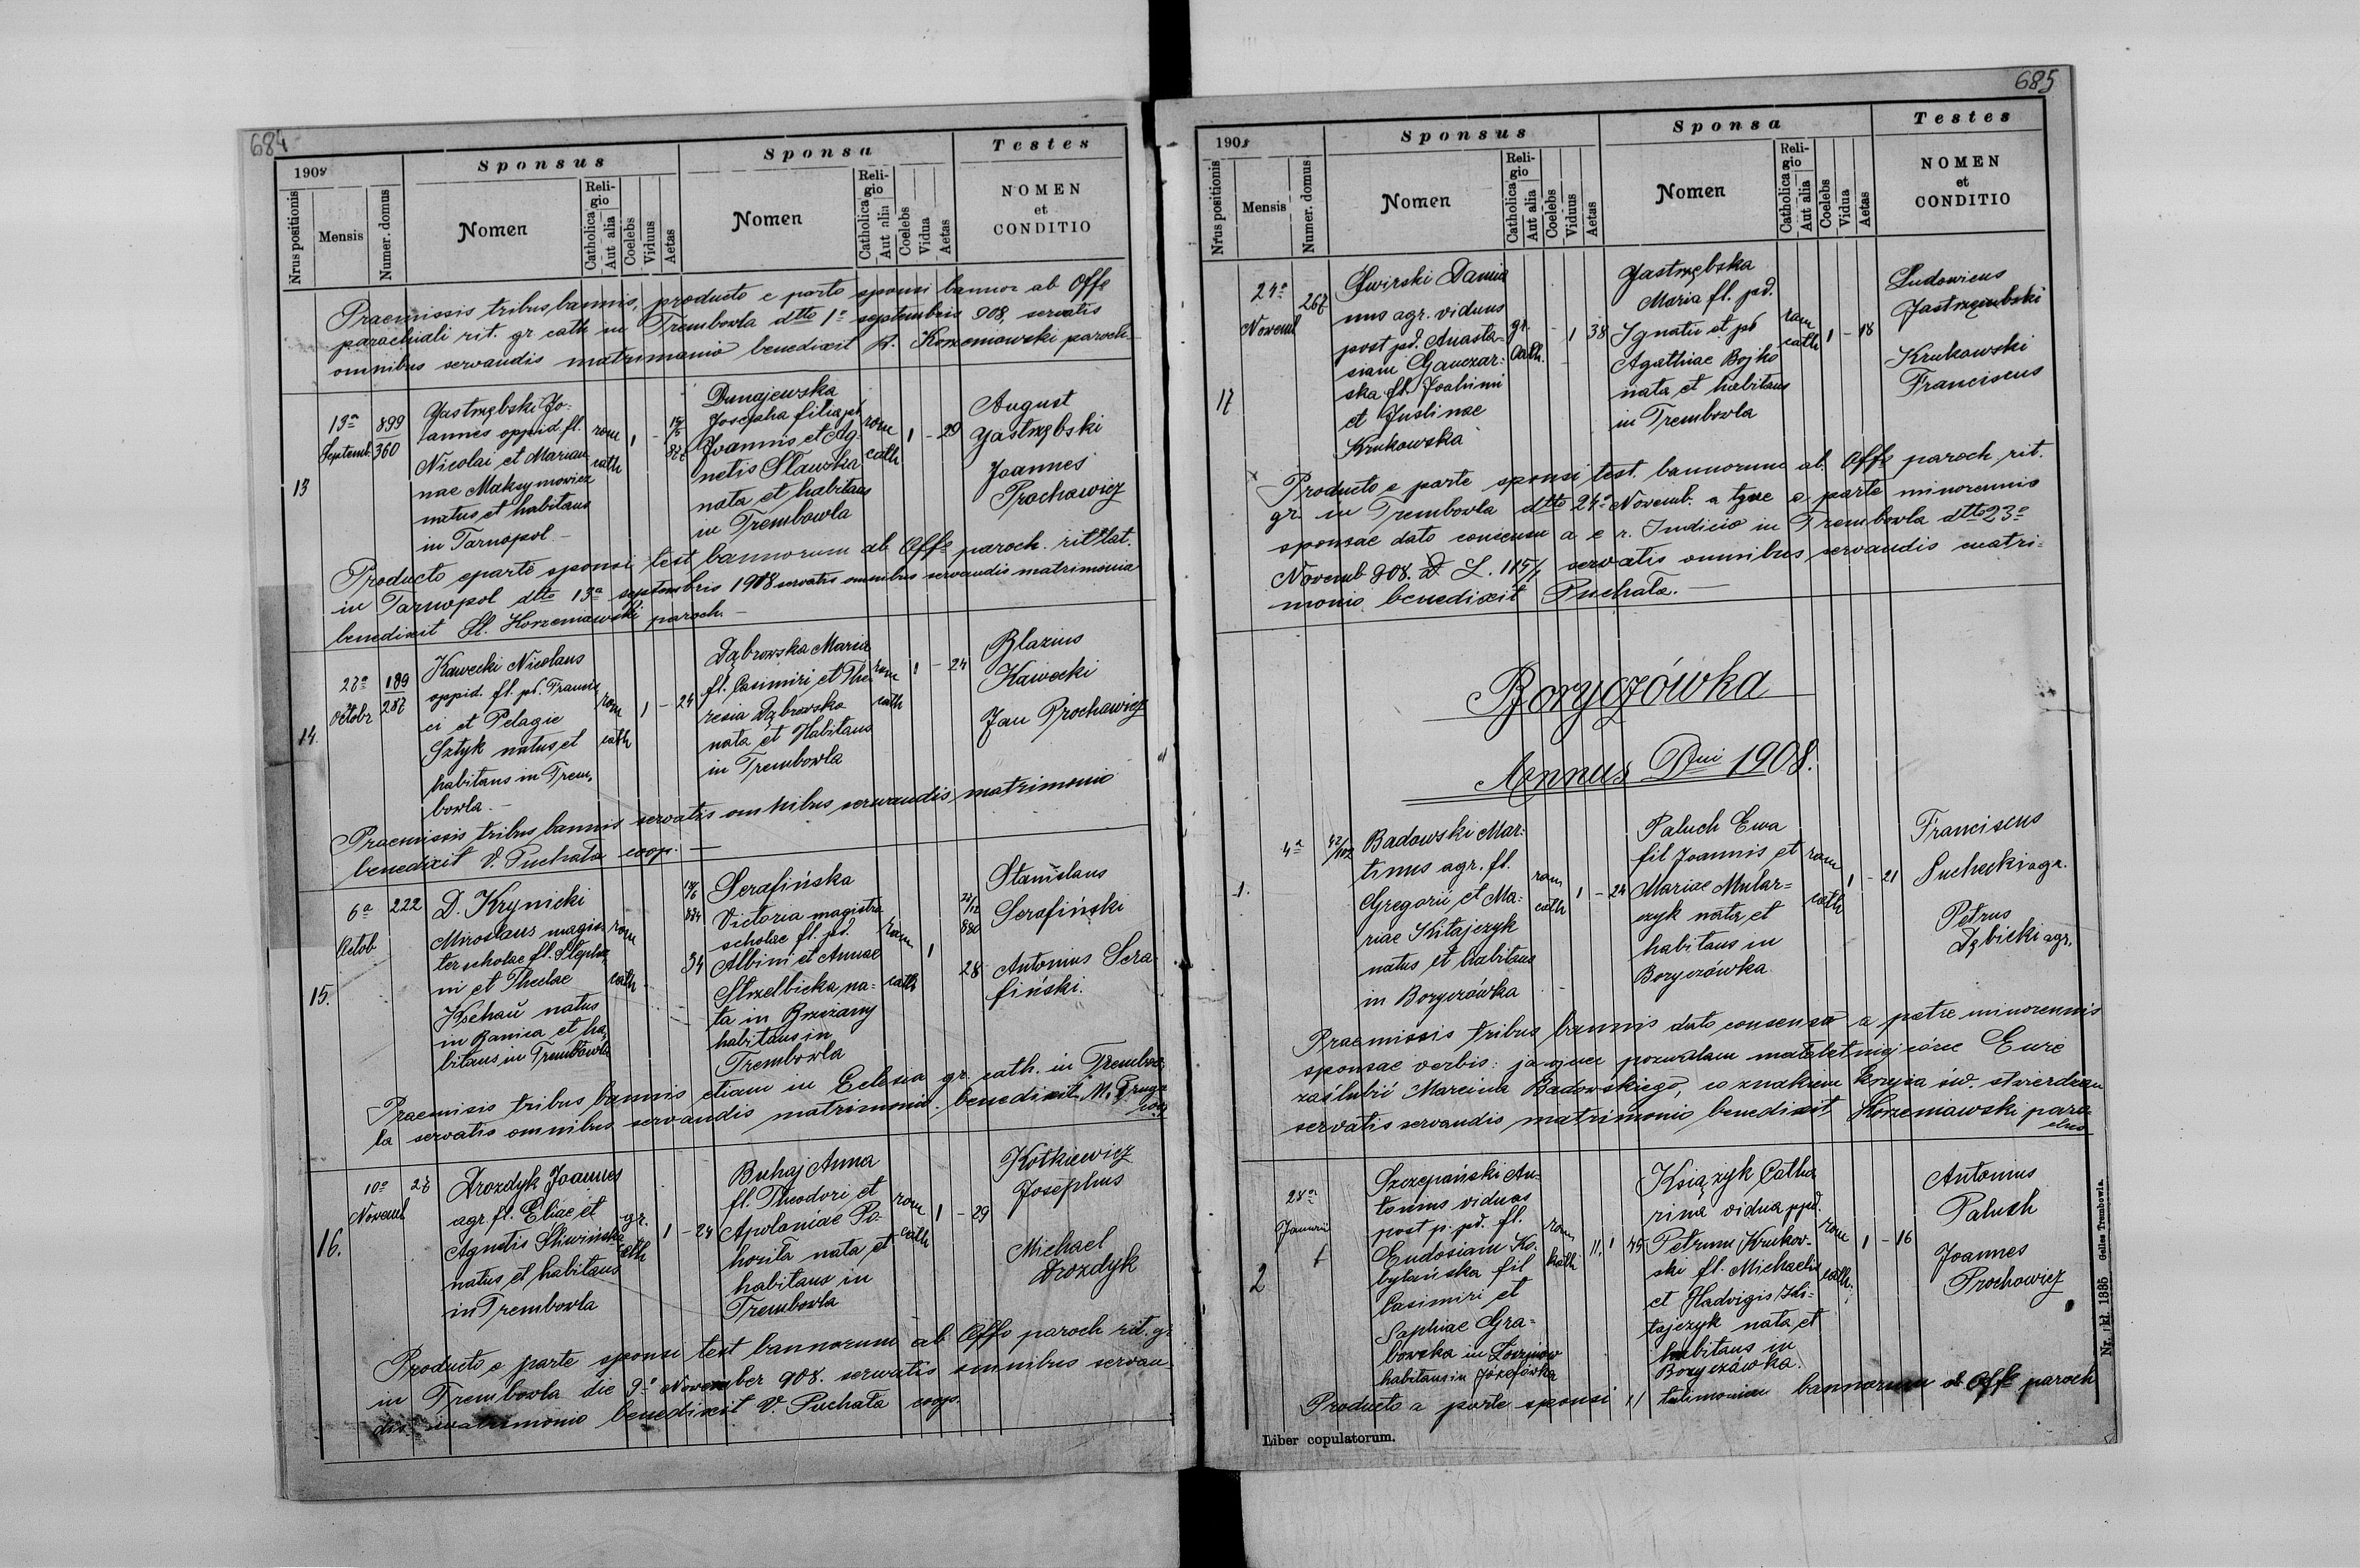 684
1908
Sponsus
Sponsa
Testes
Nrus positionis
Mensis
Numer. domus
Nomen
Religio
Catholica
Aut alia
Coelebs
Viduus
Aetas
Nomen
Religio
Catholica
Aut alia
Coelebs
Vidua
Aetas
NOMEN
et
CONDITIO
Praemissis tribus bannis, producto e parte sponsi bannor. ab Offo
parachiali rit. gr. cath. in Trembowla dtto 1a septembris 908, servatis
omnibus servandis matrimonio benedixit St. Korzeniowski paroch.
13
13a
Septemb.
899
360
Jastrzębski Jo-
annes oppid. fl.
Nicolai et Marian-
nae Maksymowicz
natus et habitans
in Tarnopol.
rom
cath
1
-
Dunajewska
Josepha filia pd.
Joannis et Ag-
netis Sławska
nata et habitans
in Trembowla
rom
cath
1
- 29
August
Jastrzębski
Joannes
Prochowicz
Producto e parte sponsi test bannorum ab Offo paroch. rit lat.
in Tarnopol dtto 13a septembris 1908 servatis omnibus servandis matrimonio
benedixit St. Korzeniowski paroch.
14.
27a
Octobr
189
287
Kawecki Nicolaus
oppid. fl. pd. Francis
ci et Pelagie
Sztyk natus et
habitans in Trem-
bowla.
rom
cath
1 - 24
Dąbrowska Maria
fl. Casimiri et The-
resia Dąbrowska
nata et Habitans
in Trembowla
rom
cath
1 - 24
Blazius
Kawecki
Jan Prochowicz
Praemissis tribus bannis servatis omnibus servandis matrimonio
benedixit V. Puchała coop.
15.
6a
Octob
222
D. Krynicki
Miroslaus magis-
ter scholae fl. Stepha-
ni et Theclae
natus
in Banica et ha-
bitans in Trembowla
rom
cath
34
Serafińska
Victoria magistra
scholae fl. pd.
Albini et Annae
Strzelbicka na-
ta in Brzeżany
habitans in
Trembowla
rom
cath
1
28
Stanislaus
Serafiński
Antonius Sera-
fiński.
Praemisis tribus bannis etiam in Eclesia gr. cath. in Trembow-
la servatis omnibus servandis matrimonio benedixit M.
16.
10a
Novemb
27
Drozdyk Joannes
agr. fl. Eliae et
Agnetis Śliwińska
natus et habitans
in Trembowla
gr.
cath
1 - 24
Buhaj Anna
fl. Theodori et
Apoloniae Po-
horiła nata et
habitans in
Trembowla
rom
cath
1 - 29
Kotkiewicz
Josephus
Michael
Drozdyk
Producto e parte sponsi test bannorum ab Offo paroch rit. gr
in Trembowla die 9a November 908. servatis omnibus servan-
dis matrimonio benedixit V. Puchała coop.
685
1908
Sponsus
Sponsa
Testes
Nrus positionis
Mensis
Numer. domus
Nomen
Religio
Catholica
Aut alia
Coelebs
Viduus
Aetas
Nomen
Religio
Catholica
Aut alia
Coelebs
Vidua
Aetas
NOMEN
et
CONDITIO
17
24a
Novemb
267
Swirski Damia
nus agr. viduus
post pd. Anasta-
siam Ganczar-
ska fl. Joachimi
et Justinae
Krukowska
gr.
Cath.
- 1 38
Jastrzębska
Maria fl. pd.
Ignatii et pd
Agathiae Bojko
nata et habitans
in Trembowla
rom
cath
1 - 18
Ludovicus
Jastrzembski
Krukowski
Franciscus
Producto e parte sponsi test. bannorum ab. Offo paroch. rit.
gr. in Trembowla dtto 24a Novemb. a tque e parte minorennis
sponsae dato consensu a c r. Indicio in Trembowla dtto 23a
Novemb 908. L. 115/1 servatis omnibus servandis matri-
monio benedixit Puchała.
Boryczówka
Annus Dni 1908.
1.
4a
42/102
Badowski Mar-
tinus agr. fl.
Gregorii et Ma-
riae Kitajczyk
natus et habitans
in Boryczówka
rom
cath
1 - 24
Paluch Ewa
fil Joannis et
Mariae Mular-
czyk nata et
habitans in
Boryczówka
rom
cath
1 - 21
Franciscus
Suchecki agr.
Petrus
Dębicki agr.
Praemissis tribus bannis dato consensu a patre minorennis
sponsae verbis: ja ojciec pozwalam małoletniej córce Ewie
zaślubić Marcina Badowskiego, co znakiem krzyża św. stwierdzam
servatis servandis matrimonio benedixit Korzeniowski paro-
chus
2
28a
Januarii
Szczepański An-
tonius viduas
post p. pd. fl.
Eudosiam Ko-
bylańska fil
Casimiri et
Sophiae Gra-
bowska in Łoszniow
habitans in Józefówka
rom
kath
1 45
Książyk Catha
rina vidua ppd.
Petrum Krukow-
ski fl. Michaelis
et Hadvigis Ki-
tajczyk nata et
habitans in
Boryczówka.
rom
cath.
1 - 16
Antonius
Paluch
Joannes
Prochowicz
Producto a parte sponsi testimonium bannorum ab Offo paroch
Liber copulatorum.
Nr. kl. 1885 Gelles Trembowla.